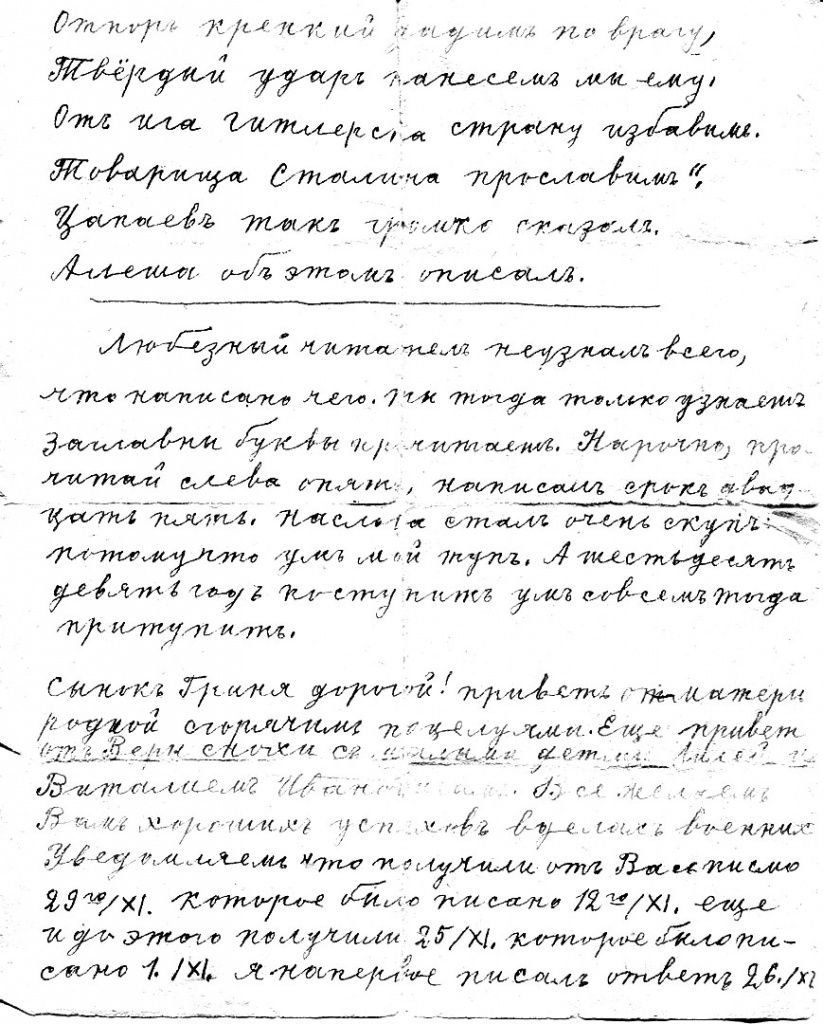 Отпоръ крепкий дадимъ по врагу,
Твёрдый ударъ нанесемъ мы ему,
Отъ ига гитлерска страну избавимъ.
Товарища Сталина прославимъ“.
Цапаевъ такъ громко сказалъ.
Алеша объ этомъ описалъ.
Любезный читатель неузналъ всего,
что написано чего. Ты тогда только узнаешъ
Заглавны буквы прочитаешъ. Нарочно, про-
читай слева опять, написалъ срокъ двад-
цать пять. Наслова сталъ очень скупъ
потомучто умъ мой тупъ. А шестьдесятъ
девять годъ поступитъ умъ совсемъ тогда
притупитъ.
Сынокъ Гриня дорогой! приветъ от матери
родной сгорячимъ поцелуями. Еще привет
отъ Веры снохи съ малыми детми и
Виталиемъ Все желаемъ
Вамъ хорошихъ успеховъ вделахъ военных
Уведомляемъ что получили отъ Васъ писмо
29го/XI. которое было писано 12го/XI. еще
и до этого получили 25/XI. которое было пи-
сано 1./XI. я напервое писалъ ответъ 26./XI